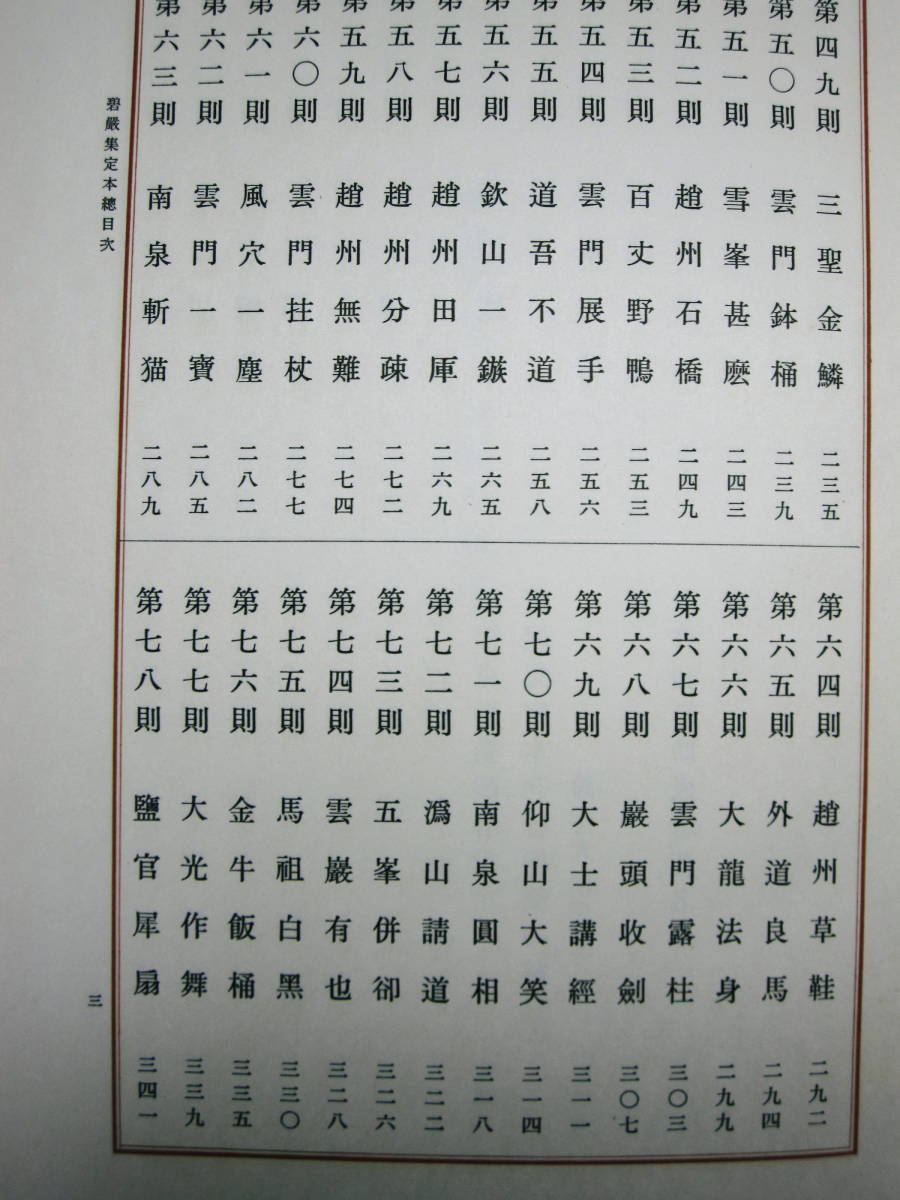 第四九則 三聖金鱗 二三五
第五〇則 雲門鉢桶 二三九
第五一則 雪峯甚麽 二四三
第五二則 趙州石橋 二四九
第五三則 百丈野鴨 二五三
第五四則 雲門展手 二五六
第五五則 道吾不道 二五八
第五六則 欽山一鏃 二六五
第五七則 趙州田厙 二六九
第五八則 趙州分疎 二七二
第五九則 趙州無難 二七四
第六〇則 雲門拄杖 二七七
第六一則 風穴一塵 二八二
第六二則 雲門一寶 二八五
第六三則 南泉斬猫 二八九
第六四則 趙州草鞋 二九二
第六五則 外道良馬 二九四
第六六則 大龍法身 二九九
第六七則 雲門露柱 三〇三
第六八則 巖頭收劍 三〇七
第六九則 大士講經 三一一
第七〇則 仰山大笑 三一四
第七一則 南泉圓相 三一八
第七二則 潙山請道 三二二
第七三則 五峯併卻 三二六
第七四則 雲巖有也 三二八
第七五則 馬祖白黑 三三〇
第七六則 金牛飯桶 三三五
第七七則 大光作舞 三三九
第七八則 鹽官犀扇 三四一
碧巖集定本總目次
三